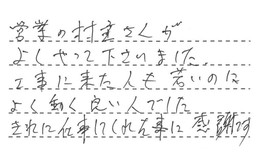 営業の村主さんが
よくやって下さいました。
工事に来た人も若いのに
よく働く良い人でした
きれいに仕事してくれた事に感謝です